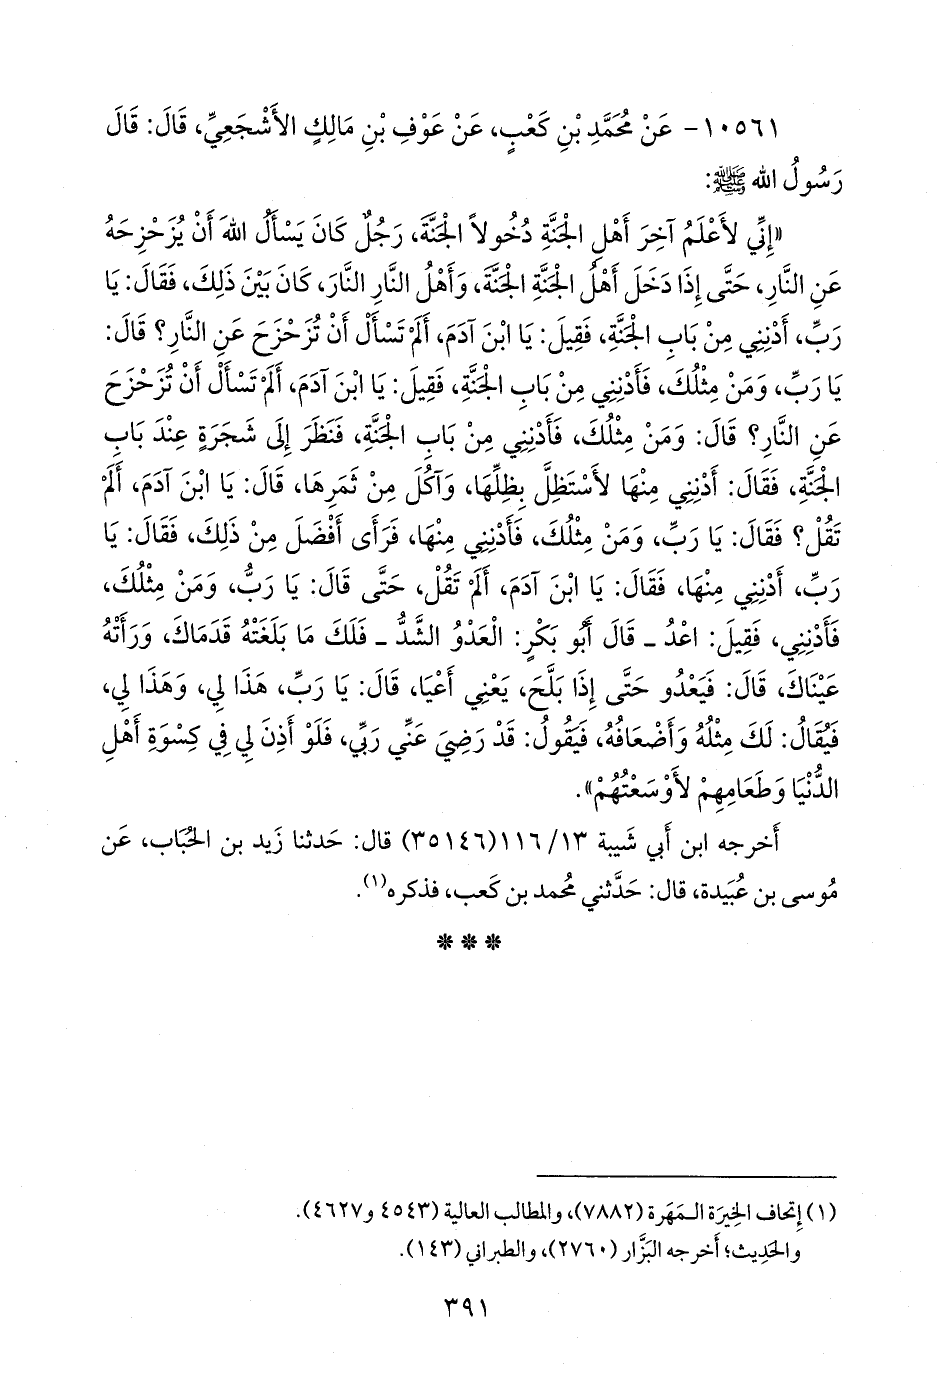 ١٠٥٦١- عَنْ مُحَمَّدِ بْنِ كَعْبٍ، عَنْ عَوْفِ بْنِ مَالِكٍ الأَشْجَعِيِّ، قَالَ: قَالَ
رَسُولُ الله ﷺ:
«إِنِّي لأَعْلَمُ آخِرَ أَهْلِ الْجَنَّةِ دُخُولاً الْجَنَّةَ، رَجُلٌ كَانَ يَسْأَلُ اللهَ أَنْ يُزَحْزِحَهُ
عَنِ النَّارِ، حَتَّى إِذَا دَخَلَ أَهْلُ الْجَنَّةِ الْجَنَّةَ، وَأَهْلُ النَّارِ النَّارَ، كَانَ بَيْنَ ذَلِكَ، فَقَالَ: يَا
رَبِّ، أَدْنِنِي مِنْ بَابِ الْجَنَّةِ، فَقِيلَ: يَا ابْنَ آدَمَ، أَلَمْ تَسْأَلْ أَنْ تُزَحْزَحَ عَنِ النَّارِ؟ قَالَ:
يَا رَبِّ، وَمَنْ مِثْلُكَ، فَأَدْنِنِي مِنْ بَابِ الْجَنَّةِ، فَقِيلَ: يَا ابْنَ آدَمَ، أَلَمْ تَسْأَلْ أَنْ تُزَحْزَحَ
عَنِ النَّارِ؟ قَالَ: وَمَنْ مِثْلُكَ، فَأَدْنِنِي مِنْ بَابِ الْجَنَّةِ، فَنَظَرَ إِلَى شَجَرَةٍ عِنْدَ بَابِ
الْجَنَّةِ، فَقَالَ: أَدْنِنِي مِنْهَا لأَسْتَظِلَّ بِظِلِّهَا، وَآكُلَ مِنْ ثَمَرِهَا، قَالَ: يَا ابْنَ آدَمَ، أَلَمْ
تَقُلْ؟ فَقَالَ: يَا رَبِّ، وَمَنْ مِثْلُكَ، فَأَدْنِنِي مِنْهَا، فَرَأَى أَفْضَلَ مِنْ ذَلِكَ، فَقَالَ: يَا
رَبِّ، أَدْنِنِي مِنْهَا، فَقَالَ: يَا ابْنَ آدَمَ، أَلَمْ تَقُلْ، حَتَّى قَالَ: يَا رَبُّ، وَمَنْ مِثْلُكَ،
فَأَدْنِنِي، فَقِيلَ: اعْدُ ـ قَالَ أَبُو بَكْرٍ: الْعَدْوُ الشَّدُّ ـ فَلَكَ مَا بَلَغَتْهُ قَدَمَاكَ، وَرَأَتْهُ
عَيْنَاكَ، قَالَ: فَيَعْدُو حَتَّى إِذَا بَلَّحَ، يَعْنِي أَعْيَا، قَالَ: يَا رَبِّ، هَذَا لِي، وَهَذَا لِي،
فَيُقَالُ: لَكَ مِثْلُهُ وَأَضْعَافُهُ، فَيَقُولُ: قَدْ رَضِيَ عَنِّي رَبِّي، فَلَوْ أَذِنَ لِي فِي كِسْوَةِ أَهْلِ
الدُّنْيَا وَطَعَامِهِمْ لأَوْسَعْتُهُمْ».
أَخرجه ابن أَبي شَيبة ١٣/١١٦(٣٥١٤٦) قال: حَدثنا زَيد بن الحُبَاب، عَن
مُوسى بن عُبَيدة، قال: حَدَّثني مُحمد بن كَعب، فذكره(١).
* * *
(١) إتحاف الخِيرَة الـمَهَرة (٧٨٨٢)، والمطالب العالية (٤٥٤٣ و٤٦٢٧).
والحَدِيث؛ أخرجه البَزَّار (٢٧٦٠)، والطبراني (١٤٣).
٣٩١